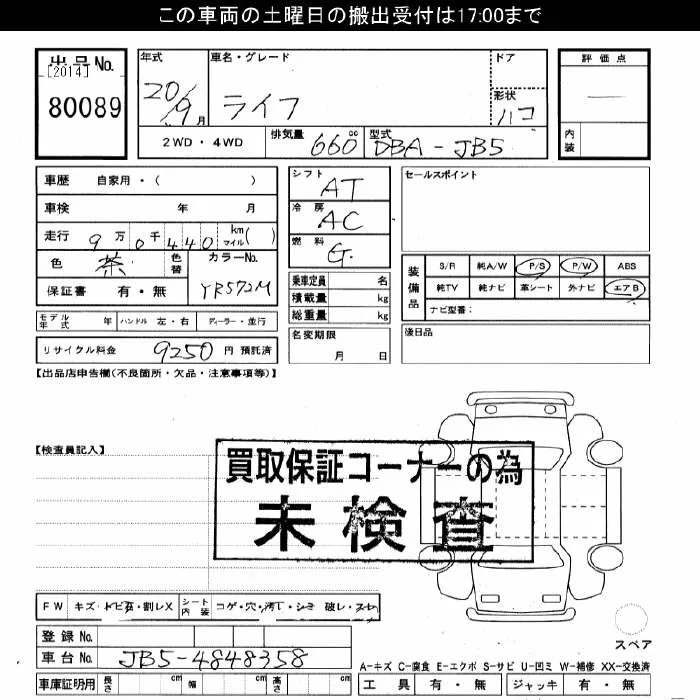 この車両の土曜日の搬出受付は17:00まで
出品No.
[2014]
80089
年式
20/9月
車名・グレード
ライフ
ドア
形状
ハコ
2WD・4WD
排気量 660 cc
型式 DBA-JB5
評価点
—
内装
車歴 自家用・( )
車検 年 月
走行 9万0千440 km マイル( )
色 茶 色替
カラーNo. YR572M
保証書 有・無
モデル年式 年 ハンドル 左・右 ディーラー・並行
リサイクル料金 9250 円 預託済
シフト AT
冷房 AC
燃料 G.
乗車定員 名
積載量 kg
総重量 kg
名変期限
月 日
セールスポイント
装備品
S/R 純A/W P/S P/W ABS
純TV 純ナビ 革シート 外ナビ エアB
ナビ型番:
後日品
【出品店申告欄(不良箇所・欠品・注意事項等)】
【検査員記入】
買取保証コーナーの為
未検査
FW キズ・トビ石・割レX シート内装 コゲ・穴・汚レ・シミ 破レ・スレ
登録No.
車台No. JB5-4848358
車庫証明用 長さ cm 幅 cm 高さ cm
スペア
A-キズ C-腐食 E-エクボ S-サビ U-凹ミ W-補修 XX-交換済
工具 有・無 ジャッキ 有・無